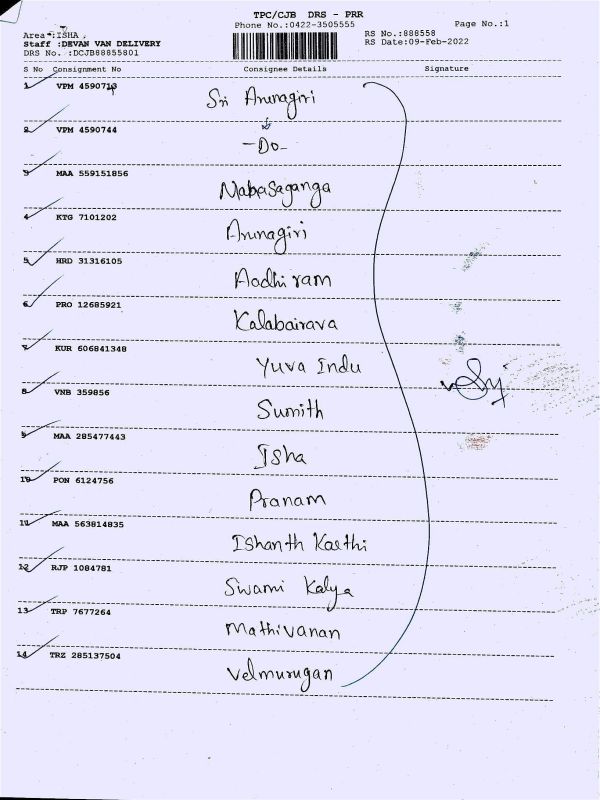 TPC/CJB DRS - PRR
Phone No.:0422-3505555
Page No.:1
Area :ISHA ,
Staff :DEVAN VAN DELIVERY
DRS No. :DCJB88855801
RS No.:888558
RS Date:09-Feb-2022
S No Consignment No Consignee Details Signature
1 VPM 4590713 Sri Arunagiri
2 VPM 4590744 -Do-
3 MAA 559151856 Mabasaganga
4 KTG 7101202 Arunagiri
5 HRD 31316105 Aadhi ram
6 PRO 12685921 Kalabairava
7 KUR 606841348 Yuva Indu
8 VNB 359856 Sumith
9 MAA 285477443 Isha
10 PON 6124756 Pranam
11 MAA 563814835 Ishanth Karthi
12 RJP 1084781 Swami Kalya
13 TRP 7677264 Mathivanan
14 TRZ 285137504 Velmurugan